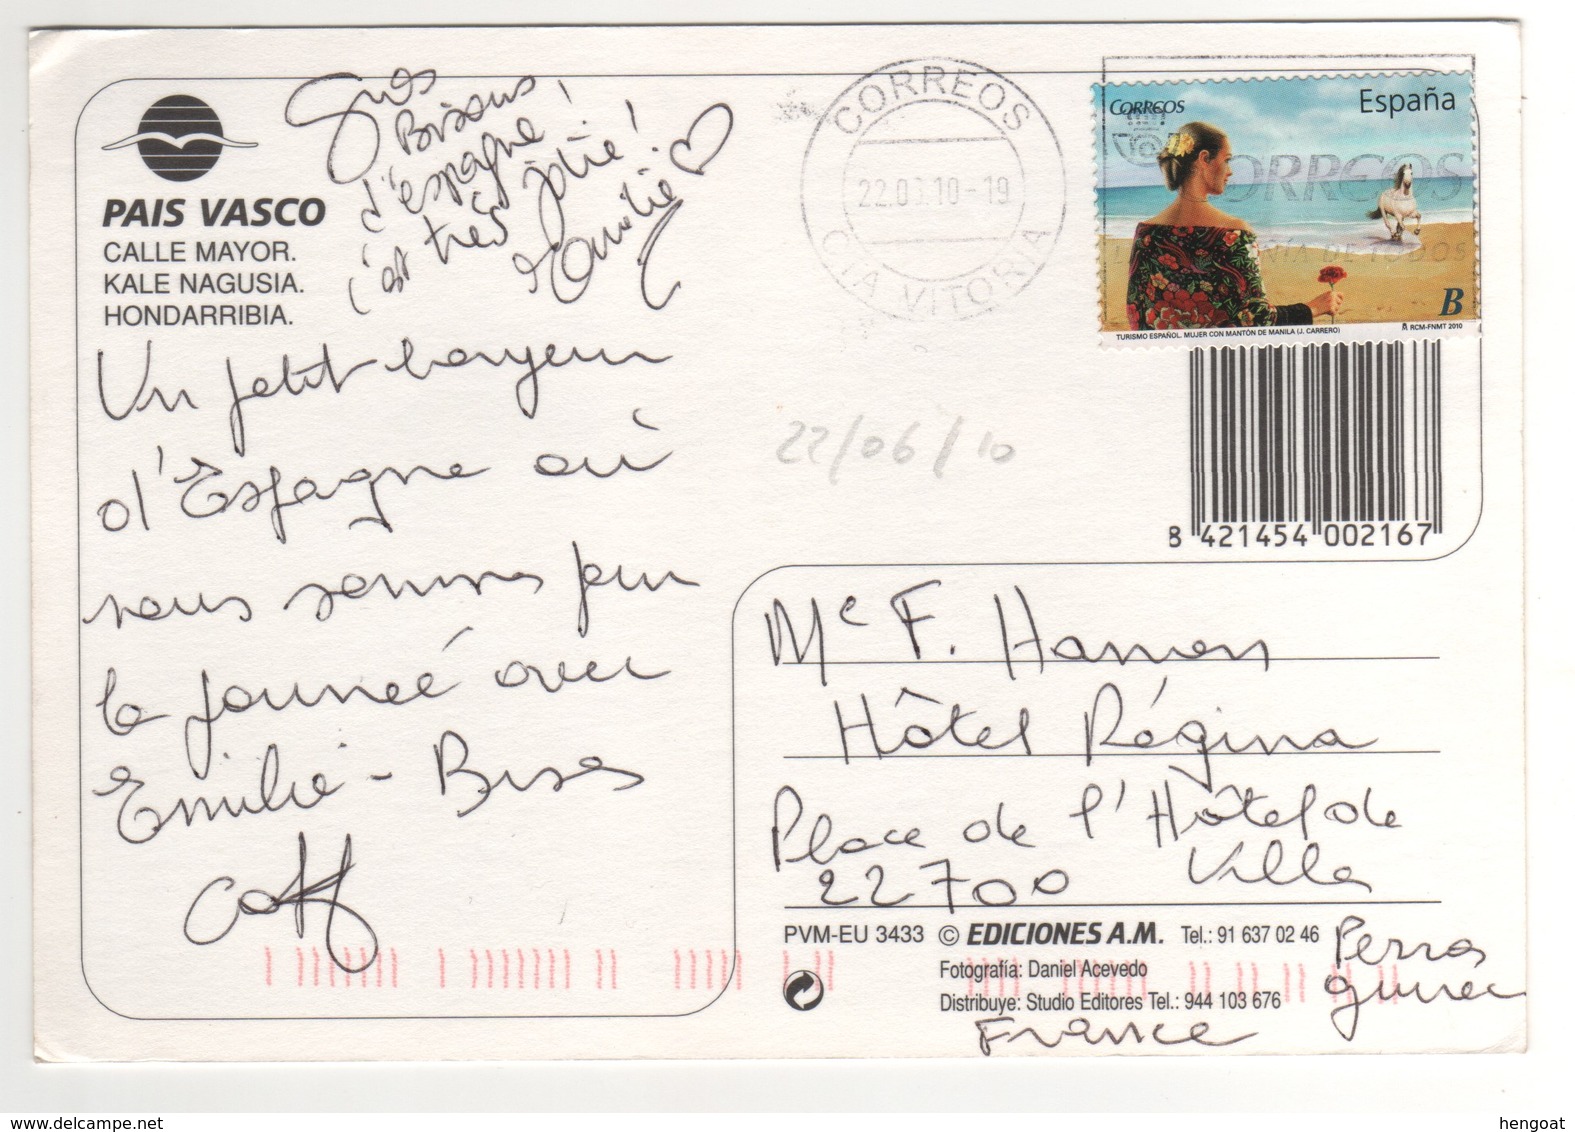 Gros
Bisous
d'espagne !
c'est très jolie !
Emilie
PAIS VASCO
CALLE MAYOR.
KALE NAGUSIA.
HONDARRIBIA.
Un petit
d'Espagne où
nous sommes pour
la journée avec
Emilie - Bises
CORREOS
22.0 .10-19
CTA VITORIA
CORREOS
España
CORREOS
DE TODOS
B
TURISMO ESPAÑOL. MUJER CON MANTÓN DE MANILA (J. CARRERO)
RCM-FNMT 2010
22/06/10
8 421454 002167
Mc F. Hamon
Hôtel Régina
Place de l'Hôtel de
Ville
22700
Perros
guirec
France
PVM-EU 3433 © EDICIONES A.M. Tel.: 91 637 02 46
Fotografía: Daniel Acevedo
Distribuye: Studio Editores Tel.: 944 103 676
www.delcampe.net
hengoat